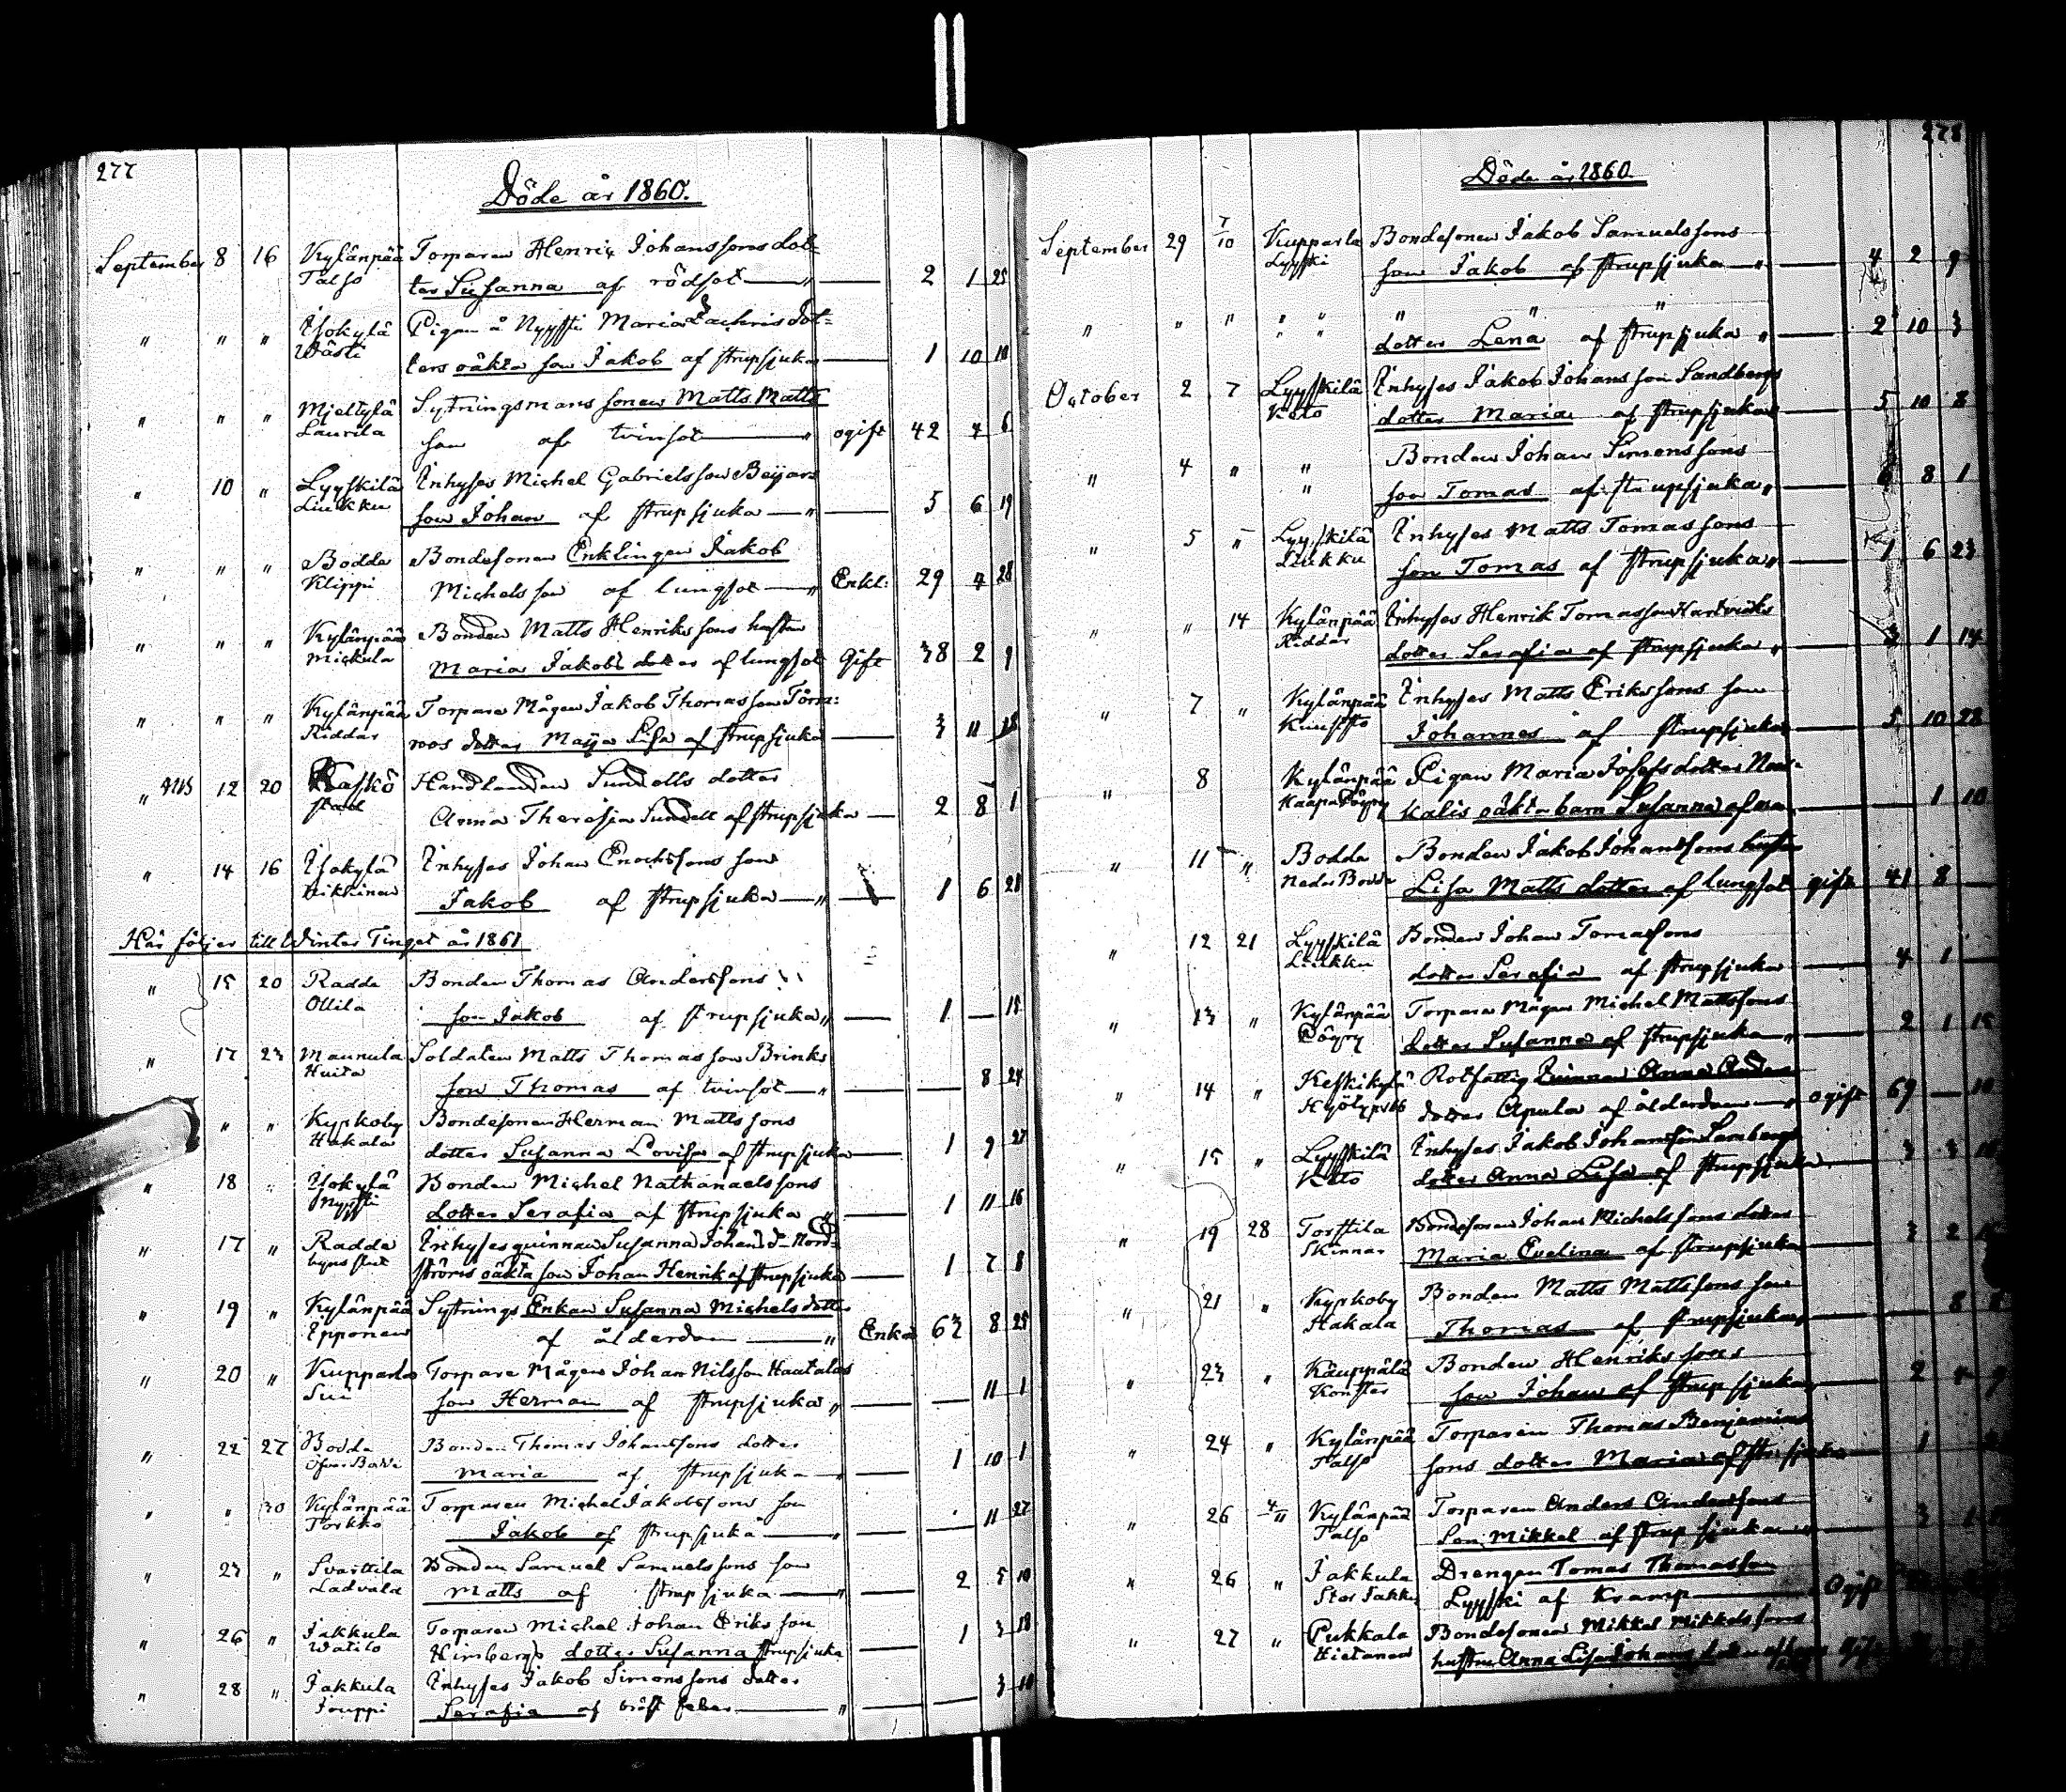 277
Döde år 1860.
September 8 16 Kylänpää Torparen Henrik Johanssons dot-
Talso ter Susanna af rödsot 2 1 25
" " " Ysokylä Pigan å Nyysti Maria Zachrisdot-
Wästi ters oäkta son Jakob af strupsjuka 1 10 10
" " " Mieltylä Sytningsmans sonen Matts Matts
Laurila son af tvinsot ogift 42 4 6
" 10 " Lyyskilä Inhyses Michel Gabrielsson Beijars
Liukku son Johan af strupsjuka 5 6 19
" " " Bodda Bondesonen Enklingen Jakob
Klippi Michelsson af lungsot Enkl: 29 4 28
" " " Kylänpää Bonden Matts Henrikssons hustru
Mickula Maria Jakobs dotter af lungsot Gift 38 2 9
" " " Kylänpää Torpare Mågen Jakob Thomasson Törn-
Riddar roos dotter Maija Lisa af strupsjuka 3 11 18
" 12 20 Kaskö Handlanden Sundells dotter
stad Anna Theresia Sundell af strupsjuka 2 8 1
" 14 16 Ysokylä Inhyses Johan Enochssons son
Jakob af strupsjuka 1 6 21
Här följer till Winter Tinget år 1861
" 15 20 Radda Bonden Thomas Anderssons
Ollila son Jakob af strupsjuka 1 — 15
" 17 23 Maunula Soldaten Matts Thomasson Brinks
Huita son Thomas af tvinsot — 8 24
" " Kyrkoby Bondesonen Herman Mattssons
Hakala dotter Susanna Lovisa af strupsjuka 1 9 27
" 18 " Ysokylä Bonden Michel Nathanaelssons
Nyysti dotter Serafia af strupsjuka 1 11 16
" 17 " Radda Inhyses quinnan Susanna Johans dr Nord-
ströms oäkta son Johan Henrik af strupsjuka 1 7 8
" 19 " Kylänpää Sytnings Enkan Susanna Michelsdotter
Epponen af ålderdom Enka 62 8 25
" 20 " Kupparla Torpare Mågen Johan Nilsson Haatalas
son Herman af strupsjuka — 11 1
" 22 27 Bodda Bonden Thomas Johanssons dotter
Öfver Bodda Maria af strupsjuka 1 10 1
" " 30 Kylänpää Torparen Michel Jakobssons son
Torkko Jakob af strupsjuka — 11 27
" 23 " Svarttila Bonden Samuel Samuelssons son
Ladvala Matts af strupsjuka 2 5 10
" 26 " Jakkula Torparen Michel Johan Eriksson
Watilo Himbergs dotter Susanna strupsjuka 1 3 18
" 28 " Jakkula Inhyses Jakob Simonssons dotter
Jouppi Serafia af bröst feber — 3 10
278
Döde år 1860.
September 29 7/10 Kupparla Bondesonen Jakob Samuelssons
Lyyski son Jakob af strupsjuka 4 2 9
" " " " " " "
dotter Lena af strupsjuka 2 10 3
October 2 7 Lyyskilä Inhyses Jakob Johansson Sandbergs
Keto dotter Maria af strupsjuka 5 10 8
" 4 " " Bonden Johan Simonssons
" son Tomas af strupsjuka 6 8 1
" 5 " Lyyskilä Inhyses Matts Tomassons
Liukku son Tomas af strupsjuka 1 6 23
" " 14 Kylänpää Inhyses Henrik Tomasson Hartviks
Riddar dotter Serafia af strupsjuka 3 1 14
" 7 " Kylänpää Inhyses Matts Erikssons son
Johannes af strupsjuka 5 10 28
" 8 Kylänpää Pigan Maria Josefs dotter
oäkta barn Susanna — 1 10
" 11 " Bodda Bonden Jakob Johanssons hustru
Neder Bodda Lisa Matts dotter af lungsot gift 41 8 —
" 12 21 Lyyskilä Bonden Johan Tomassons
Liukku dotter Serafia af strupsjuka 4 1 —
" 13 " Kylänpää Torpare Mågen Michel Mattssons
Pöyry dotter Susanna af strupsjuka 2 1 15
" 14 " Keskikylä Rotfattig Quinnan Anna Anders
dotter Apula af ålderdom ogift 69 — 10
" 15 " Lyyskilä Inhyses Jakob Johansson
Keto dotter Anna Lisa af strupsjuka 3 3
" 19 28 Torttila Bondesonen Johan Michelssons dotter
Skinnar Maria Evelina af strupsjuka 3 2
" 21 " Kyrkoby Bonden Matts Mattssons son
Hakala Thomas af strupsjuka 8
" 23 " Käuppälä Bonden Henrikssons
Konster son Johan af strupsjuka 2 4 9
" 24 " Kylänpää Torparen Thomas Benjamins
Talso sons dotter Maria af strupsjuka 1
" 26 4/11 Kylänpää Torparen Anders Anderssons
Talso Son Mikkel af strupsjuka 3 1
" 26 " Jakkula Drengen Tomas Thomasson
Stor Jakku Lyyski af Kramp Ogift
" 27 " Pukkala Bondesonen Mikkel Mikkelssons
Hietanen hustru Anna Lisa Johans dotter af